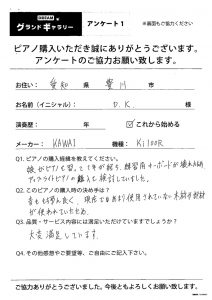 グランドギャラリー アンケート1 ※裏面もご協力ください
ピアノ購入いただき誠にありがとうございます。
アンケートのご協力お願い致します。
お住い: 愛知 県 豊川 市
お名前(イニシャル): D.K. 様
演奏歴: 年 これから始める
メーカー: KAWAI 機種: Ki100R
Q1. ピアノの購入経緯を教えてください。
娘がピアノを習って1年が経ち、練習用キーボードが壊れた為
アップライトピアノの購入を検討していました。
Q2. このピアノの購入時の決め手は?
音もお手入れ良く、現在ではあまり使用されていない木材や部材
が使われていた為。
Q3. 品質・サービス内容には満足いただけていますでしょうか?
大変満足しています。
Q4. その他ご意見やご要望等、ご自由にご記入下さい。
ご協力ありがとうございました。今後ともよろしくお願い致します。